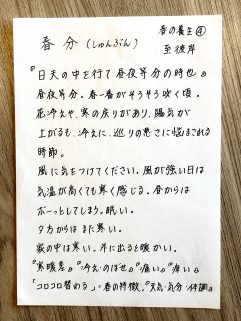 春の養生④
春分（しゅんぶん）
至彼岸
『日天の中を行て昼夜等分の時也』
昼夜等分。春一番がそろそろ吹く頃。
花冷えや、寒の戻りがあり、陽気が
上がるも、冷えに、巡りの悪さに悩まされる
時節。
風に気をつけてください。風が強い日は
気温が高くても寒く感じる。昼からは
ボーッとしてしまう。眠い。
夕方からはまた寒い。
家の中は寒い。外に出ると暖かい。
『寒暖差』『冷えのぼせ』『痛い』『痒い』
「コロコロ替わる」=春の特徴。『天気・気分・体調』